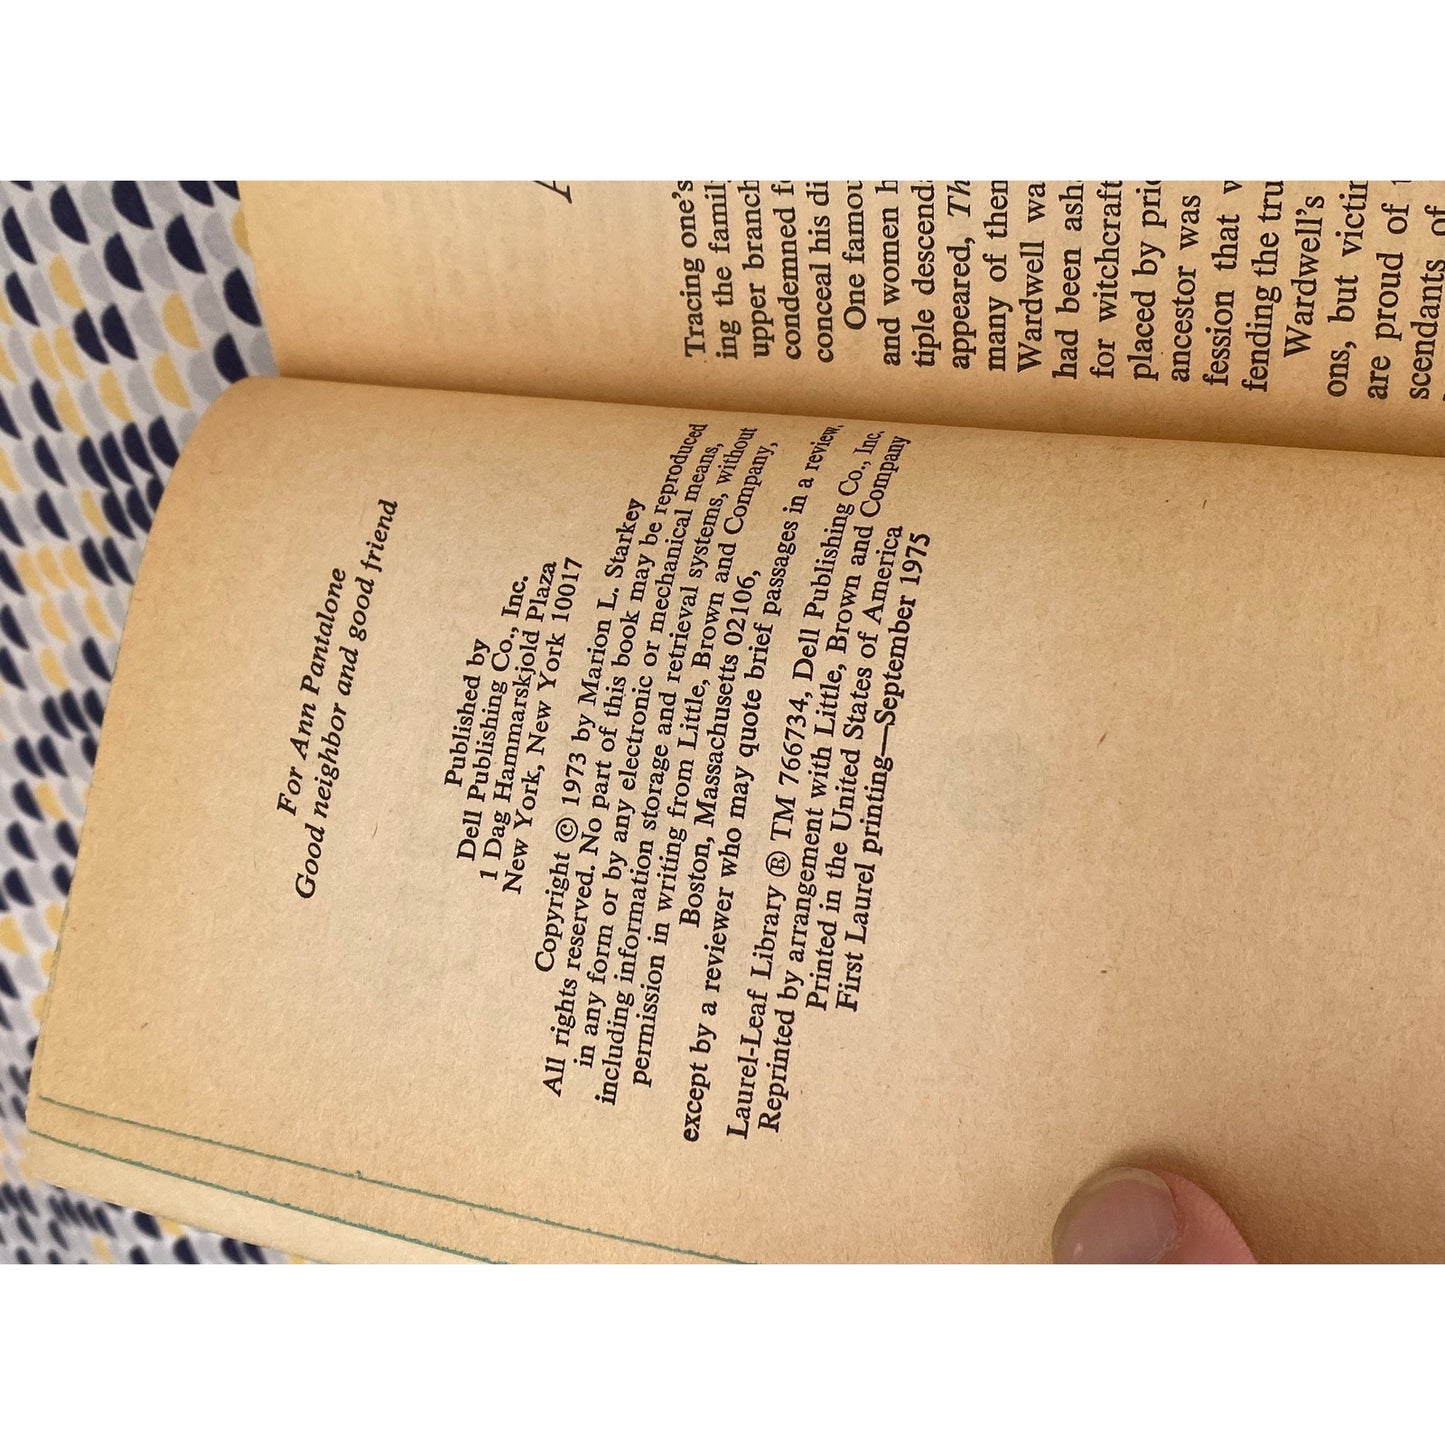 For Ann Pantalone
Good neighbor and good friend
Published by
Dell Publishing Co., Inc.
1 Dag Hammarskjold Plaza
New York, New York 10017
Copyright © 1973 by Marion L. Starkey
All rights reserved. No part of this book may be reproduced
in any form or by any electronic or mechanical means,
including information storage and retrieval systems, without
permission in writing from Little, Brown and Company,
Boston, Massachusetts 02106,
except by a reviewer who may quote brief passages in a review.
Laurel-Leaf Library ® TM 766734, Dell Publishing Co., Inc.
Reprinted by arrangement with Little, Brown and Company
Printed in the United States of America
First Laurel printing—September 1975
A
Tracing one's
ing the famil
upper branch
condemned f
conceal his di
One famou
and women h
tiple descend
appeared, Th
many of them
Wardwell wa
had been ash
for witchcraft
placed by pri
ancestor was
fession that w
fending the tru
Wardwell's
ons, but victi
are proud of
scendants of